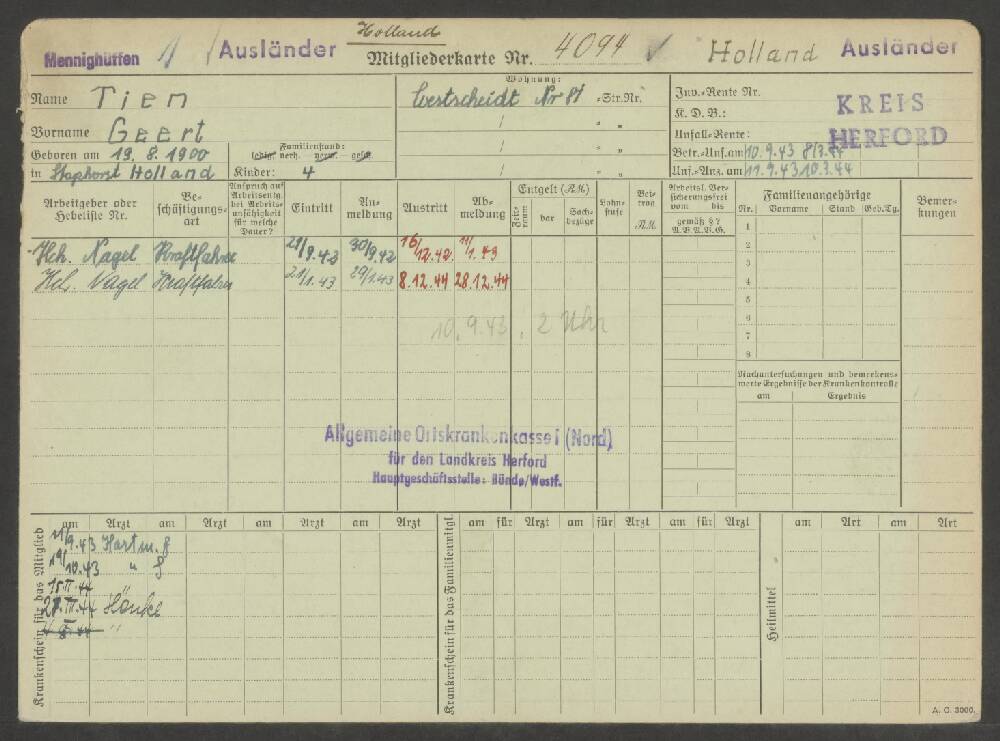 Holland
Mennighüffen Ausländer Mitgliederkarte Nr. 4094 Holland Ausländer
Wohnung:
Name Tien Westscheidt Nr 81 -Str.Nr. Inv.-Rente Nr.
K. D. B.: KREIS
Vorname Geert / " " Unfall-Rente: HERFORD
Geboren am 19. 8. 1900 Familienstand: / " " Betr.-Unf. am 10.9.43 8/3.44
ledig. verh. verw. – gesch.
in Staphorst Holland Kinder: 4 / " " Unf.-Anz. am 11.9.43 10.3.44
Arbeitgeber oder Hebeliste Nr. Beschäftigungsart Anspruch auf Arbeitsentg. bei Arbeitsunfähigkeit für welche Dauer? Eintritt Anmeldung Austritt Abmeldung Entgelt (RM) Zeitraum bar Sachbezüge Lohnstufe Beitrag RM. Arbeitsl. Versicherungsfrei vom bis gemäß § ? A.V.A.V.G. Familienangehörige Nr. Vorname Stand Geb.Tg. Bemerkungen
Hch. Nagel Kraftfahrer 21/9.42 30/9.42 16/12.42. 11/1.43
Hch. Nagel Kraftfahrer 21/1.43 29/1.43 8.12.44 28.12.44
1
2
3
4
5
6
7
8
10.9.43. 2 Uhr
Nachuntersuchungen und bemerkenswerte Ergebnisse der Krankenkontrolle
am Ergebnis
Allgemeine Ortskrankenkasse I (Nord)
für den Landkreis Herford
Hauptgeschäftsstelle: Bünde/Westf.
Krankenschein für das Mitglied am Arzt am Arzt am Arzt am Arzt
Krankenschein für das Familienmitgl. am für Arzt am für Arzt am für Arzt
Heilmittel am Art am Art
11/9.43 Hartm. 8
19/10.43 " 8
15.II.44
27.III.44 Hönke
"
A. O. 3000.